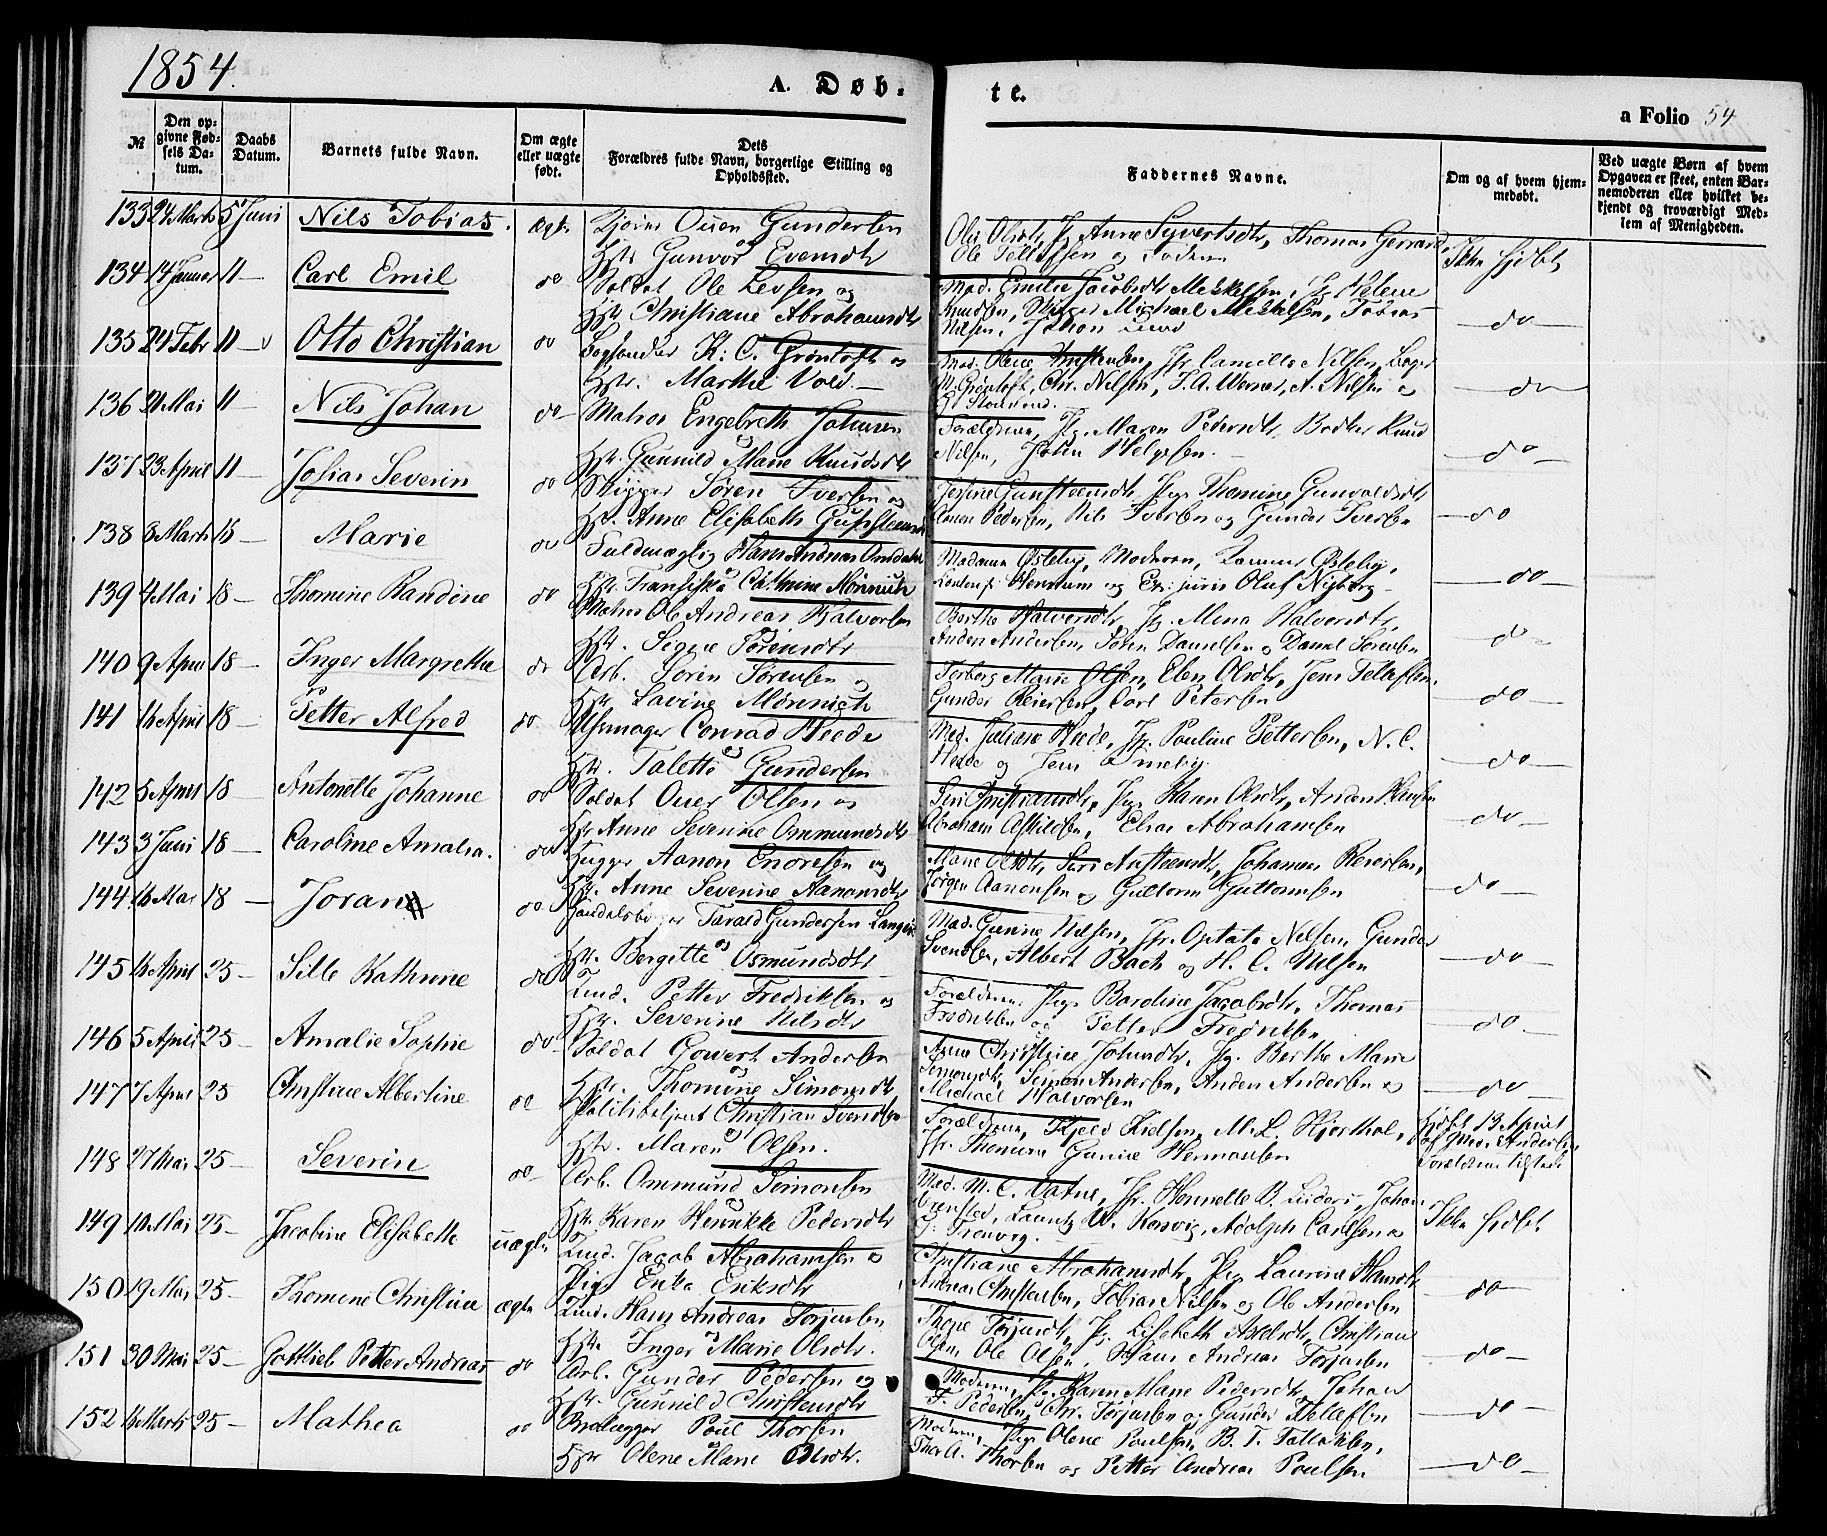 1854.
A. Døb-
te.
a Folio 54
№
Den opgivne Fødsels Datum.
Daabs Datum.
Barnets fulde Navn.
Om ægte eller uægte født.
Dets Forældres fulde Navn, borgerlige Stilling og Opholdssted.
Faddernes Navne.
Om og af hvem hjemmedøbt.
Ved uægte Børn af hvem Opgaven er skeet, enten Barnemoderen eller hvilket bekjendt og troværdigt Medlem af Menigheden.
133 24 Marts 5 Juni Nils Tobias. ægte Bjørn Ouen Gundersen
Hstr Gunvor Evensdtr
Anne Syvertsdtr, Thomas
Ole Tellefsen og Faderen
Ikke hjdøbt
134 14 Januar 11 — Carl Emil do Soldat Ole Levsen og
Hstr Christiane Abrahamsdtr
Mad. Emilie Jacobsdtr Mickelsen, Pg. Helene
Knudsen, Skipper Michael Mickelsen, Tobias
Nilsen, Johan
— do —
135 24 Febr 11 — Otto Christian do Bogbinder K: C. Grøntoft og
Hstr. Marthe Vold —
Mad. Olene Christensen, Jfr Camilla Nilsen,
M. Grøntoft, Chr. Nilsen, F. A. Werner, A. Nilsen og
— do —
136 21 Mai 11 — Nils Johan do — Matros Engebreth Johnsen
Hstr. Gunnild Marie Knudsdtr
Forældrene, Pg. Maren Pedersdtr, Bødker Knud
Nilsen, John Helgesen. —
— do —
137 23 April 11 — Josias Severin do Skipper Søren Iversen og
Hst. Anne Elisabeth
Pige Thomine Gunvaldsdtr
Pedersen, Nils Iversen og Gunder Iversen
— do
138 3 Marts 15 — Marie do Fuldmægtig Hans Andreas Omdahl
Hstr. Fransiska Cathrine Mønnich
Madame Østebye, Moderen,
og Ex: juris Oluf Nyborg —
— do —
139 4 Mai 18 — Thomine Randine do Matros Ole Andreas Halvorsen
Hstr. Signe Sørensdtr
Berthe Halvorsdtr, Pg. Mina Halvorsdtr,
Anders Andersen, John Danielsen og Daniel Sørensen
do —
140 9 April 18 — Inger Margrethe do Arb. Søren Sørensen og
Hstr. Lavine Mønnich
Torborg Marie Olsen, Elen Olsdtr, Jens Tellefsen,
Gunder Reiersen, Carl Petersen
— do —
141 16 April 18 — Petter Alfred do Uhrmager Conrad Heede
Hstr. Talette Gundersen
Mad. Juliane Heede, Jfr. Pauline Pettersen, N. C.
Heede og Jens
— do —
142 5 April 18 — Antonette Johanne do Soldat Ouer Olsen og
Hstr Anne Severine Ommundsdtr
Siri Christiansdtr, Pige Karen Olsdtr,
Abraham Askildsen, Elias Abrahamsen
— do —
143 3 Juni 18 — Caroline Amalia. do Hugger Aanon Endresen og
Hstr. Anne Severine Aanonsdtr
Marie Olsdtr, Siri
Jørgen Aanonsen og Guttorm Guttormsen
— do —
144 16 Mai 18 — Joran do Handelsborger Tarald Gundersen
Hstr. Bergitte Osmundsdtr
Mad. Gurine Nilsen, Jfr. Optata Nilsen, Gunder
Svendsen, Albert Bach og H. C. Nilsen
— do —
145 16 April 25 — Sille Kathrine do Lind. Petter Fredriksen og
Hstr. Severine Nilsdtr
Forældrene, Pige Bardine Jacobsdtr, Thomas
Fredriksen og Petter Fredriksen
— do —
146 5 April 25 — Amalie Sophie do — Soldat Gowert Andersen
Hstr. Thomine Simonsdtr
Anne Christine Johnsdtr, Pg. Berthe Marie
Simonsdtr, Simon Andersen, Anders Andersen og
Michael Halvorsen
— do —
147 7 April 25 Christine Albertine do Politibetjent Christian Svendsen
Hstr. Maren Olsen.
Forældrene, Kjeld Kielsen, M. L. Hjorthol,
Jfr. Thomine Gurine Hermansen
hjdøbt 13 April
af Mad. Andersen
Forældrene tilstede
148 27 Mai 25 — Severin do — Arb. Ommund Simonsen
Hstr. Karen Henrikke Pedersdtr
Mad. M. C. Vatne, Jfr. Hennette B. Lüders, Johan
Lauritz W. Korvig, Adolph Carlsen og
Ikke hjdøbt
149 10 Mai 25 — Jacobine Elisabeth uægte Lind. Jacob Abrahamsen og
Pige Erika Eriksdtr
Christiane Abrahamsdtr, Pige Laurine Hansdtr
Andreas Christensen, Tobias Nilsen og Ole Andersen
— do —
150 19 Mai 25 — Thomine Christine ægte Lind. Hans Andreas Torjusen
Hstr. Inger Marie Olsdtr.
Thone Torjusdtr, Pg. Lisebeth Axelsdtr, Christian
Olsen, Ole Olsen, Hans Andreas Torjusen
— do —
151 30 Mai 25 — Gottlieb Petter Andreas do Arb. Gunder Pedersen og
Hstr. Gunnild Christensdtr
Moderen, Pg. Karen Marie Pedersdtr, Johan
F. Pedersen, Chr. Torjusen og Gunder Detlefsen
— do —
152 16 Marts 25 — Mathea do Poul Thorsen
Hstr Olene Marie Olsdtr.
Moderen, Pige Olene Poulsen, B. T. Tallaksen,
Thor A. Thorsen og Petter Andreas Poulsen
— do —